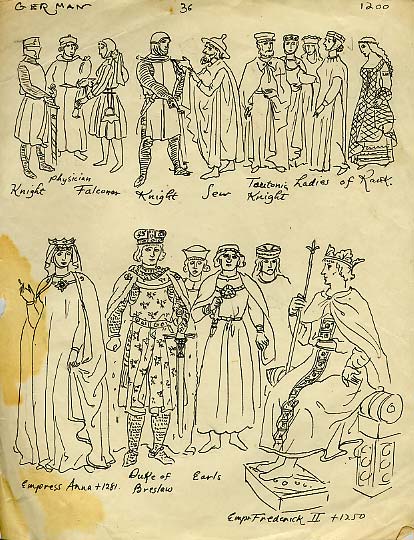 GERMAN 36 1200
Physician
Knight Falconer Knight Jew Teutonic Ladies of Rank.
Knight
Empress Anna +1281. Duke of Earls
Breslaw
Empr Frederick II +1250